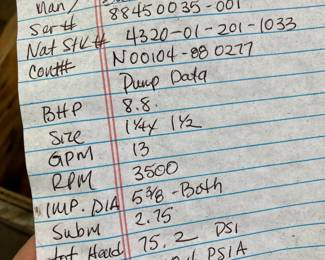 Man/
Ser# 88450035-001
Nat Stk# 4320-01-201-1033
Cont# N00104-88 0277
Pump Data
BHP 8.8.
Size 1 1/4 x 1 1/2
GPM 13
RPM 3500
IMP. DIA 5 3/8 - Both
Subm 2.75
Tot Head 75.2 DSI
PSIA